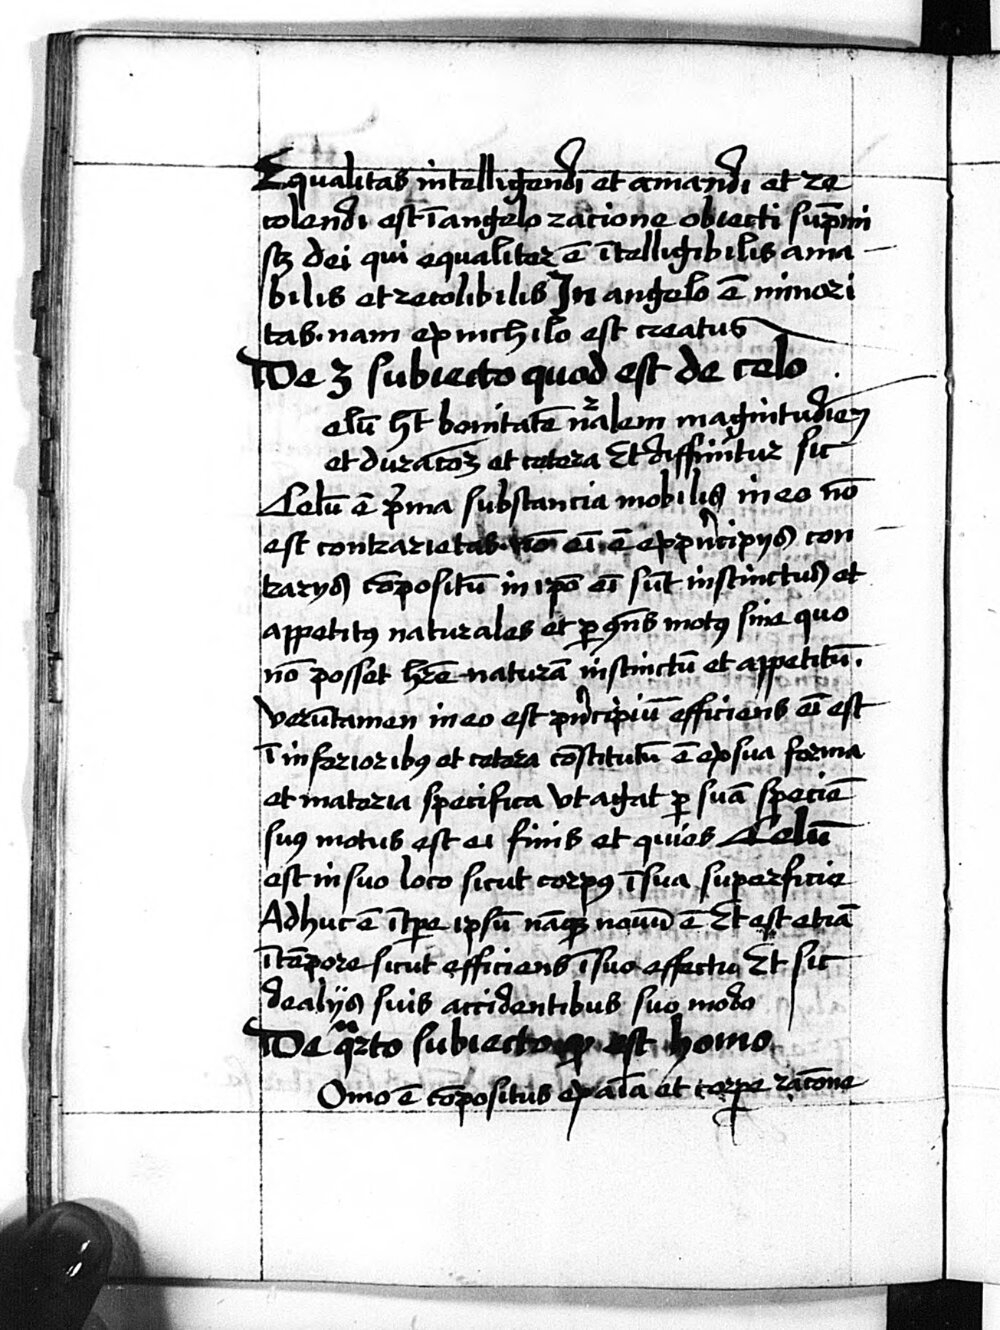 Equalitas intelligendi et amandi et re
colendi est ī angelo racione obiecti sup̄mi
sꝫ dei qui equaliter ē ītelligibilis ama
bilis et recolibilis In angelo ē minori
tas. nam ex nichilo est creatus
De 3 subiecto quod est de celo
elū hꝫ bonitatē nr̄alem magnitudinem
et duracōꝫ et cetera Et diffinitur sic
Celū ē p̄ma substancia mobilis in eo nō
est contrarietas. nō eī ē ex pͥncipijs con
trarijs cōpositū in ip̄o eī sūt instinctus et
appetitꝰ naturales et ꝑ ꝯn̄s motꝰ sine quo
nō posset hr̄e naturā instinctū et appetitū.
verūtamen in eo est pͥncipiū efficiens eī est
ī inferioribꝰ et cetera cōstitutū ē ex sua forma
et materia specifica vt agat ꝑ suā speciē
suꝰ motus est ei finis et quies Celū
est in suo loco sicut corpꝰ ī sua superficie
Adhuc ē ī tꝑe ipsū nāqꝫ nouū ē Et est etiā
ī tēpore sicut efficiens ī suo effectu Et sic
de alijs suis accidentibus suo modo
De q̄rto subiecto qđ est homo
Omo ē cōpositus ex aīa et corpe racōne